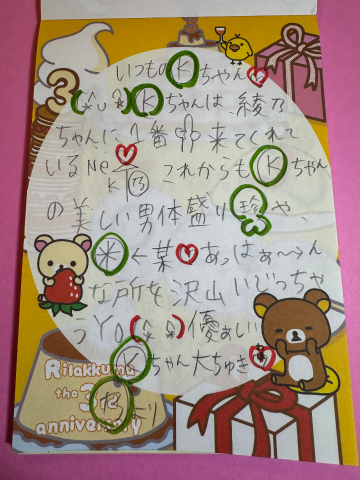 いつものⓀちゃん♡
(ˆ∪ˆ)Ⓚちゃんは、綾乃
ちゃんに1番
来てくれて
いるNe♡
これからもⓀちゃん
の美しい男体盛り珍や、
←某♡あっはぁ〜ん
な所を沢山いじっちゃ
うYo
優ぁしい
Ⓚちゃん大ちゅき
より
Rilakkuma
tha 3rd
anniversary
3